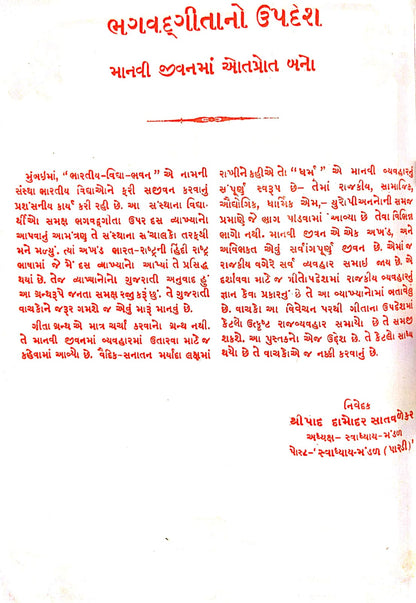 ભગવદ્ગીતાનો ઉપદેશ
માનવી જીવનમાં ઓતપ્રોત બનો
મુંબઇમાં, “ભારતીય-વિદ્યા-ભવન” એ નામની
સંસ્થા ભારતીય વિદ્યાઓને ફરી સજીવન કરવાનું
પ્રશંસનીય કાર્ય કરી રહી છે. આ સંસ્થાના વિદ્યા-
ર્થીઓ સમક્ષ ભગવદ્ગીતા ઉપર દસ વ્યાખ્યાનો
આપવાનું આમંત્રણ તે સંસ્થાના સંચાલકો તરફથી
મને મળ્યું. ત્યાં અખંડ ભારત-રાષ્ટ્રની હિંદી રાષ્ટ્ર
ભાષામાં જે મેં દસ વ્યાખ્યાનો આપ્યાં તે પ્રસિદ્ધ
થયાં છે. તેજ વ્યાખ્યાનોનો ગુજરાતી અનુવાદ હું
આ ગ્રન્થરૂપે જનતા સમક્ષ રજૂ કરૂં છું. તે ગુજરાતી
વાચકોને જરૂર ગમશે જ એવું મારૂં માનવું છે.
ગીતા ગ્રન્થ એ માત્ર ચર્ચા કરવાનો ગ્રન્થ નથી.
તે માનવી જીવનમાં વ્યવહારમાં ઉતારવા માટે જ
કહેવામાં આવ્યો છે. વૈદિક-સનાતન મર્યાદા લક્ષમાં
રાખીને કહીએ તો “ધર્મ” એ માનવી વ્યવહારનું
સંપૂર્ણ સ્વરૂપ છે- તેમાં રાજકીય, સામાજિક,
ઔદ્યોગિક, ધાર્મિક એમ,- યુરોપીઅનોની સમજ
પ્રમાણે જે ભાગ પાડવામાં આવ્યા છે તેવા વિભિન્ન
ભાગો નથી. માનવી જીવન એ એક અખંડ, અને
અવિભકત એવું સર્વાંગપૂર્ણ જીવન છે. એમાં જ
રાજકીય વગેરે સર્વ વ્યવહાર સમાઇ જાય છે. એ
દર્શાવવા માટે જ ગીતોપદેશમાં રાજકીય વ્યવહારનું
જ્ઞાન કેવા પ્રકારનું છે તે આ વ્યાખ્યાનોમાં બતાવેલું
છે. વાચકો આ વિવેચન પરથી ગીતાના ઉપદેશમાં
કેટલો ઉત્કૃષ્ટ રાજવ્યવહાર સમાયો છે તે સમજી
શકશે. આ પુસ્તકનો એજ ઉદ્દેશ છે. તે કેટલો સાધ્ય
થયો છે તે વાચકોએ જ નક્કી કરવાનું છે.
નિવેદક
શ્રીપાદ દામોદર સાતવળેકર
અધ્યક્ષ - સ્વાધ્યાય-મંડળ
પોસ્ટ-‘સ્વાધ્યાય-મંડળ (પારડી)’